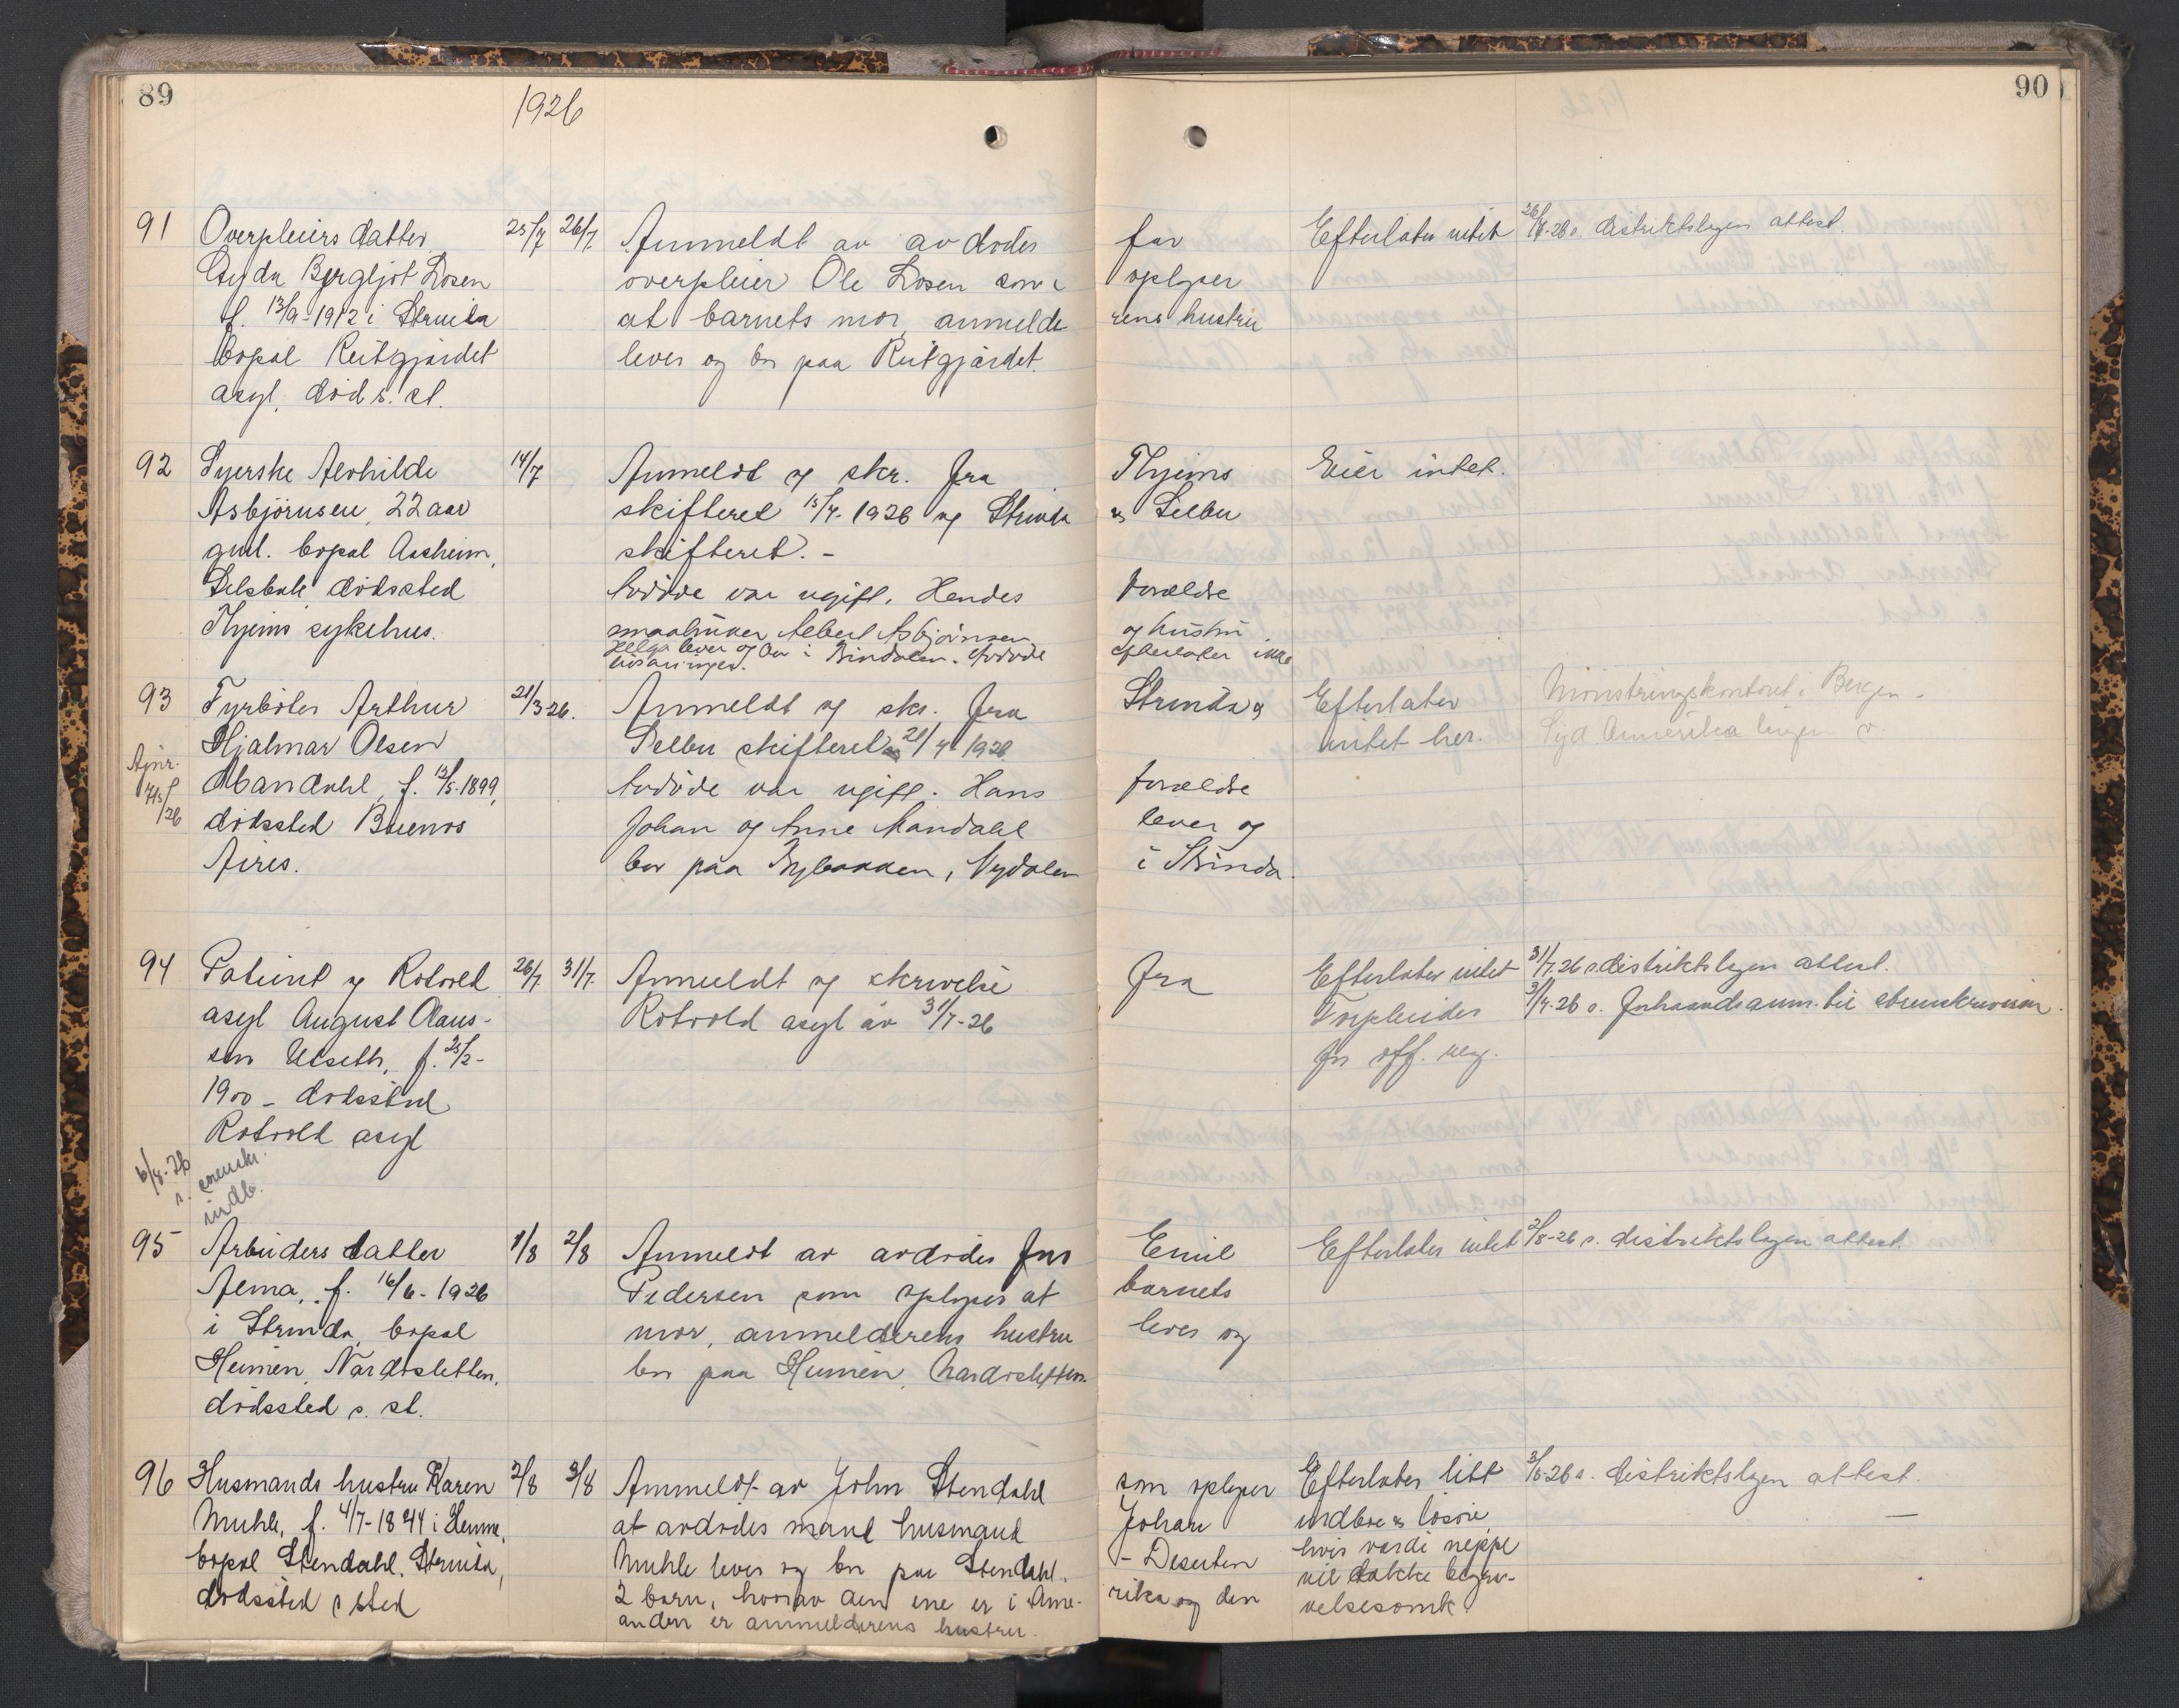 89
1926
90
91 Overpleiers datter 25/7 26/7 Anmeldt av avdødes far Efterlater intet 26/7-26 s. distriktslegen attest.
Gyda Bergljot Losen overpleier Ole Losen som oplyser
f. 13/9-1912 i Strinda at barnets mor, anmelde rens hustru
bopæl Reitgjærdet lever og bor paa Reitgjærdet.
asyl, død s. st.
92 Syerske Alvhilde 14/7 Anmeldt og skr. fra Thjems Eier intet.
Asbjørnsen, 22 aar skifteret 15/7-1926 og Strinda og Selbu
gml. bopæl Aasheim, skifteret. -
Selsbak dødssted Avdøde var ugift. Hendes forældre
Thjems sykehus. smaabruker Albert Asbjørnsen og hustru
Helga lever og bor i Bindalen. Avdøde efterlater ikke
livsarvinger.
93 Fyrbøter Arthur 21/3-26. Anmeldt og skr. fra Strinda og Efterlater Mønstringskontoret i Bergen -
Hjalmar Olsen Selbu skifteret 21/7-1926 intet her. Syd Amerika linjen
Ajnr.
Mandahl, f. 12/5-1899, Avdøde var ugift. Hans forældre
dødssted Buenos Johan og Anne Mandahl lever og
Aires. bor paa Bybakken, Nydalen i Strinda.
94 Patient ved Rotvold 26/7 31/7. Anmeldt ved skrivelse fra Efterlater intet 31/7-26 s. distriktslegen attest.
asyl August Claus- Rotvold asyl av 31/7-26 Forpleiedes 31/7-26 s.
sen Utseth, f. 25/2- for off. regn.
1900 - dødssted
Rotvold asyl
6/8-26
s.
indb.
95 Arbeiders datter 1/8 2/8 Anmeldt av avdødes far Emil Efterlater intet 2/8-26 s. distriktslegen attest.
Alma, f. 16/6-1926 Pedersen som oplyser at barnets
i Strinda, bopæl mor, anmelderens hustru lever og
Heimen, Nardosletten, bor paa Heimen, Nardosletten.
dødssted s. st.
96 Husmands hustru Karen 2/8 3/8 Anmeldt av John Stendahl som oplyser Efterlater litt 3/8-26 s. distriktslegen attest.
Muhle, f. 4/7-1844 i Hemne, at avdødes mand husmand Johan indbo og løsøre, —
bopæl Stendahl, Strinda, Muhle lever og bor paa Stendahl. - Desuten hvis værdi neppe
dødssted s sted 2 barn, hvorav den ene er i Ame- rika og den vil dække begra-
anden er anmelderens hustru. velsesomk.